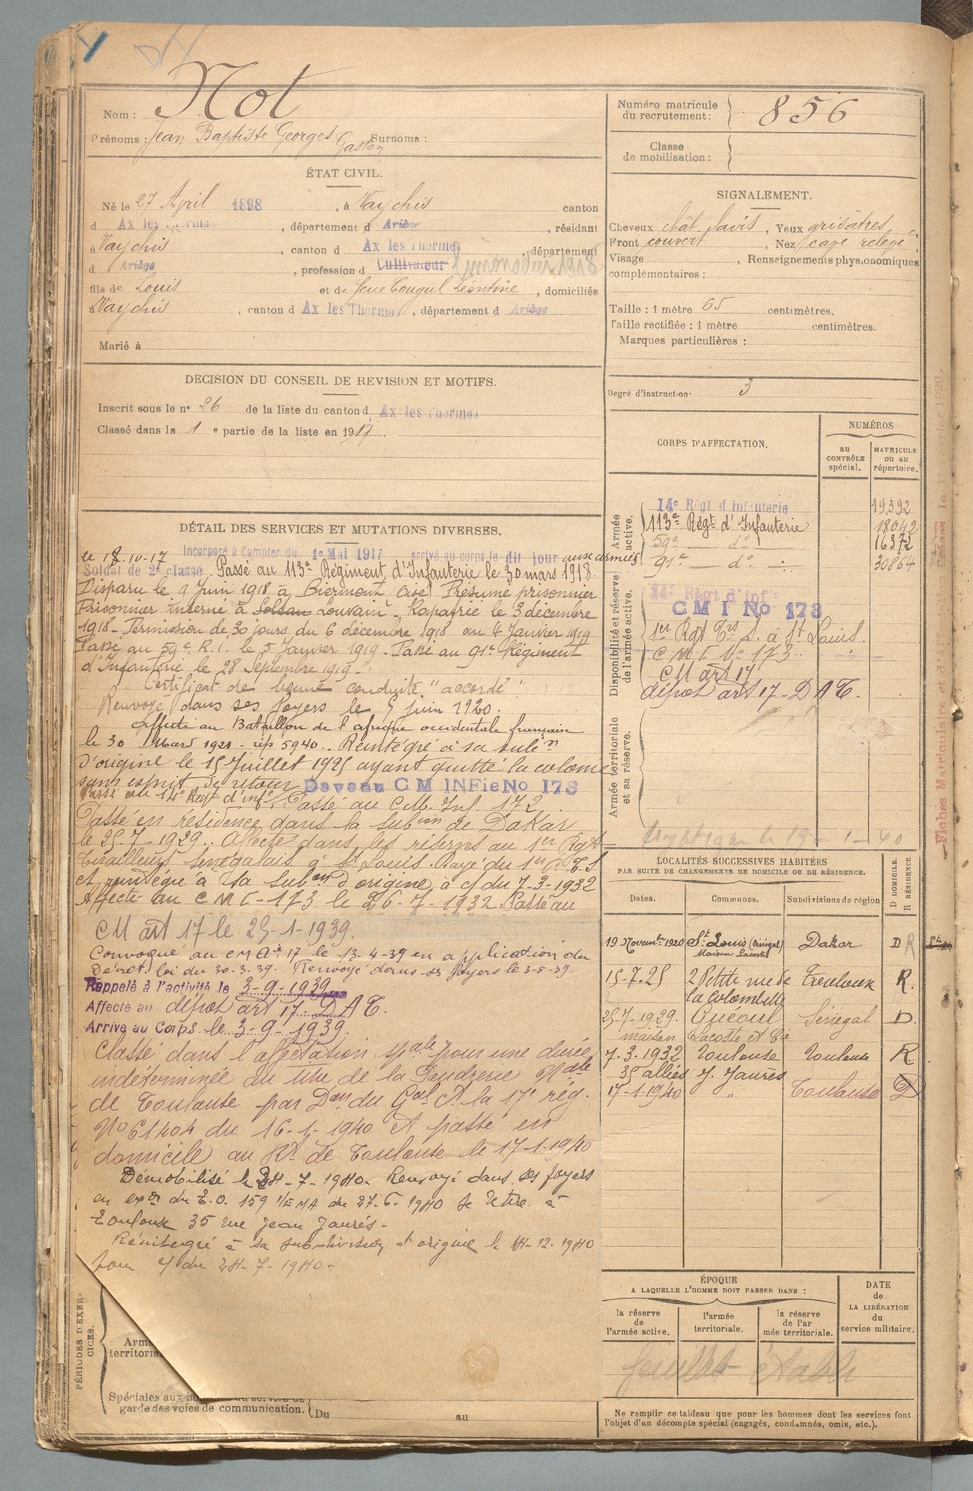 Nom : Not
Prénoms : Jean Baptiste Georges Gaston Surnoms :
ÉTAT CIVIL.
Né le 27 Avril 1898, à Vaychis canton
d Ax les Thermes, département d Ariège, résidant
à Vaychis, canton d Ax les Thermes, département
d Ariège, profession d Cultivateur Limonadier 1918
fils de Louis et de feue Cougul Léontine, domiciliés
à Vaychis, canton d Ax les Thermes, département d Ariège
Marié à
DÉCISION DU CONSEIL DE REVISION ET MOTIFS.
Inscrit sous le n° 26 de la liste du canton d Ax les Thermes
Classé dans la 1 e partie de la liste en 1917.
DÉTAIL DES SERVICES ET MUTATIONS DIVERSES.
Incorporé à Compter du 1er Mai 1917 arrivé au corps le dit jour aux armées
le 18-10-17
Soldat de 2e classe. Passé au 113e Régiment d'Infanterie le 30 mars 1918.
Disparu le 9 Juin 1918 à (Oise) Présumé prisonnier
Prisonnier interné à Soltau Louvain. Rapatrié le 3 décembre
1918. Permission de 30 jours du 6 décembre 1918 au 4 Janvier 1919
Passé au 59e R.I. le 5 Janvier 1919. Passé au 91e Régiment
d'Infanterie le 28 Septembre 1919.
Certificat de bonne conduite "accordé"
Renvoyé dans ses foyers le Juin 1920.
Affecté au Bataillon de l'afrique occidentale française
le 30 Mars 1921 - 5940. Réintégré à sa subon
d'origine le 15 Juillet 1925 ayant quitté la colonie
sans esprit de retour Devenu C M INFie No 173
Passé au 14e Régt d'infie Passé au C.M. Inf. 172
Passé en résidence dans la subion de Dakar
le 25-7-1929. Affecté dans les réserves au 1er Rgt
Tirailleurs Sénégalais à St Louis. Rayé du 1er R.T.S.
et réintégré à sa subon d'origine, à c/ du 7-3-1932
Affecté au C M I-173 le 26-7-1932. Passé au
CM art 17 le 25-1-1939.
Convoqué au CM At 17 le 13-4-39 en application du
Décret loi du 30.3.39. Renvoyé dans ses foyers le 3-5-39.
Rappelé à l'activité le 3-9-1939
Affecté au dépôt art 17 D A T.
Arrivé au Corps le 3-9-1939.
Classé dans l'affectation spale pour une durée
indéterminée au titre de la Poudrerie Nale
de Toulouse par Don du Gal Ct la 17e rég.
N° 61404 du 16-1-1940 et passé en
domicile au Rt de Toulouse le 17-1-1940
Démobilisé le 24-7-1940. Renvoyé dans ses foyers
en exon du T.O. 159 1/EMA du 27-6-1940 Se retire à
Toulouse 35 rue Jean Jaurès-
Réintégré à sa subdivision d'origine le 4-12-1940
pour c/ du 24-7-1940-
PÉRIODES D'EXERCICES.
Armée
territoriale
Spéciales aux
garde des voies de communication. Du au
Numéro matricule
du recrutement : 856
Classe
de mobilisation :
SIGNALEMENT.
Cheveux chât. , Yeux
Front couvert, Nez cave relevé
Visage , Renseignements physionomiques
complémentaires :
Taille : 1 mètre 65 centimètres.
Taille rectifiée : 1 mètre centimètres.
Marques particulières :
Degré d'instruction : 3
CORPS D'AFFECTATION.
NUMÉROS
au
CONTRÔLE
spécial.
MATRICULE
ou au
répertoire.
Armée active.
14e Régt d'infanterie 19392
113e Régt d'Infanterie 18042
59e do 16372
91e do 30864
Disponibilité et réserve de l'armée active.
14e Régt d'Infie
C M I No 173
1er Rgt Tirs S. à St Louis.
C M I N° 173
CM art 17
dépôt art 17 - D A T.
Armée territoriale et sa réserve.
le 19-1-40
LOCALITÉS SUCCESSIVES HABITÉES
PAR SUITE DE CHANGEMENTS DE DOMICILE OU DE RÉSIDENCE.
Dates. Communes. Subdivisions de région D DOMICILE. R RÉSIDENCE
19 Novemb 1920 St Louis (Sénégal) Maison Lacoste Dakar D R
15-7-25 2 Petite rue de la colombette R.
25-7-1929. Guéoul Sénégal D
maison Lacoste et Cie
7-3-1932 Toulouse Toulouse R
35 allées J. Jaurès
17-1-1940 " Toulouse D
ÉPOQUE
A LAQUELLE L'HOMME DOIT PASSER DANS :
la réserve
de
l'armée active.
l'armée
territoriale.
la réserve
de l'ar
mée territoriale.
DATE
de
LA LIBÉRATION
du
service militaire.
feuillet établi
Ne remplir ce tableau que pour les hommes dont les services font
l'objet d'un décompte spécial (engagés, condamnés, omis, etc.).